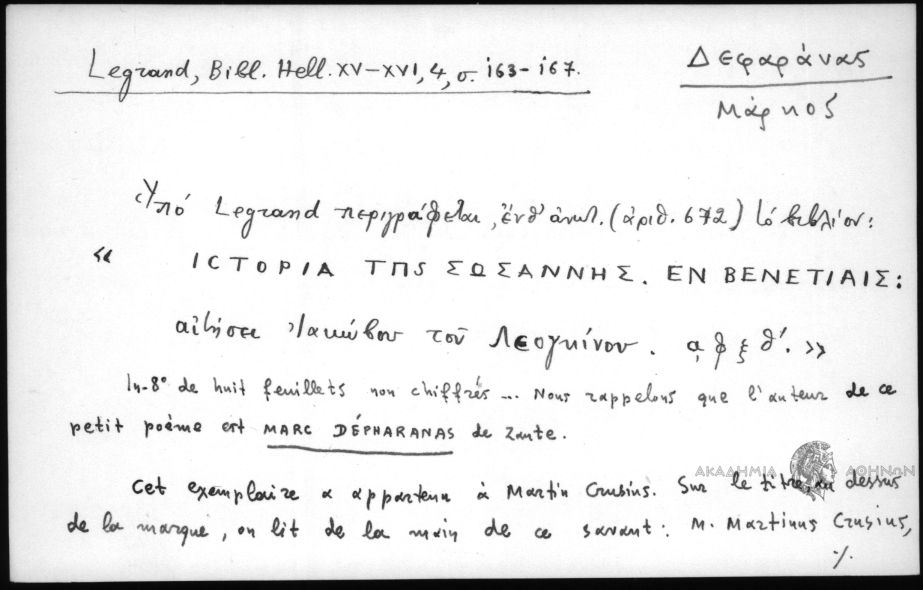 Legrand, Bibl. Hell. XV–XVI, 4, σ. 163–167.
Δεφαράνας
Μάρκος
Ὑπό Legrand περιγράφεται, ἔνθ' ἀνωτ. (ἀριθ. 672) τό βιβλίον:
« ΙCΤΟΡΙΑ ΤΗς ΣΩΣΑΝΝΗΣ. ΕΝ ΒΕΝΕΤΙΑΙΣ:
αἰτήσει Ἰακώβου τοῦ Λεογκίνου. αφξθ'. »
In-8° de huit feuillets non chiffrés ... Nous rappelons que l'auteur de ce
petit poème est MARC DÉPHARANAS de Zante.
ΑΚΑΔΗΜΙΑ ΑΘΗΝΩΝ
Cet exemplaire a appartenu à Martin Crusius. Sur le titre, au dessus
de la marque, on lit de la main de ce savant: M. Martinus Crusius,
./.